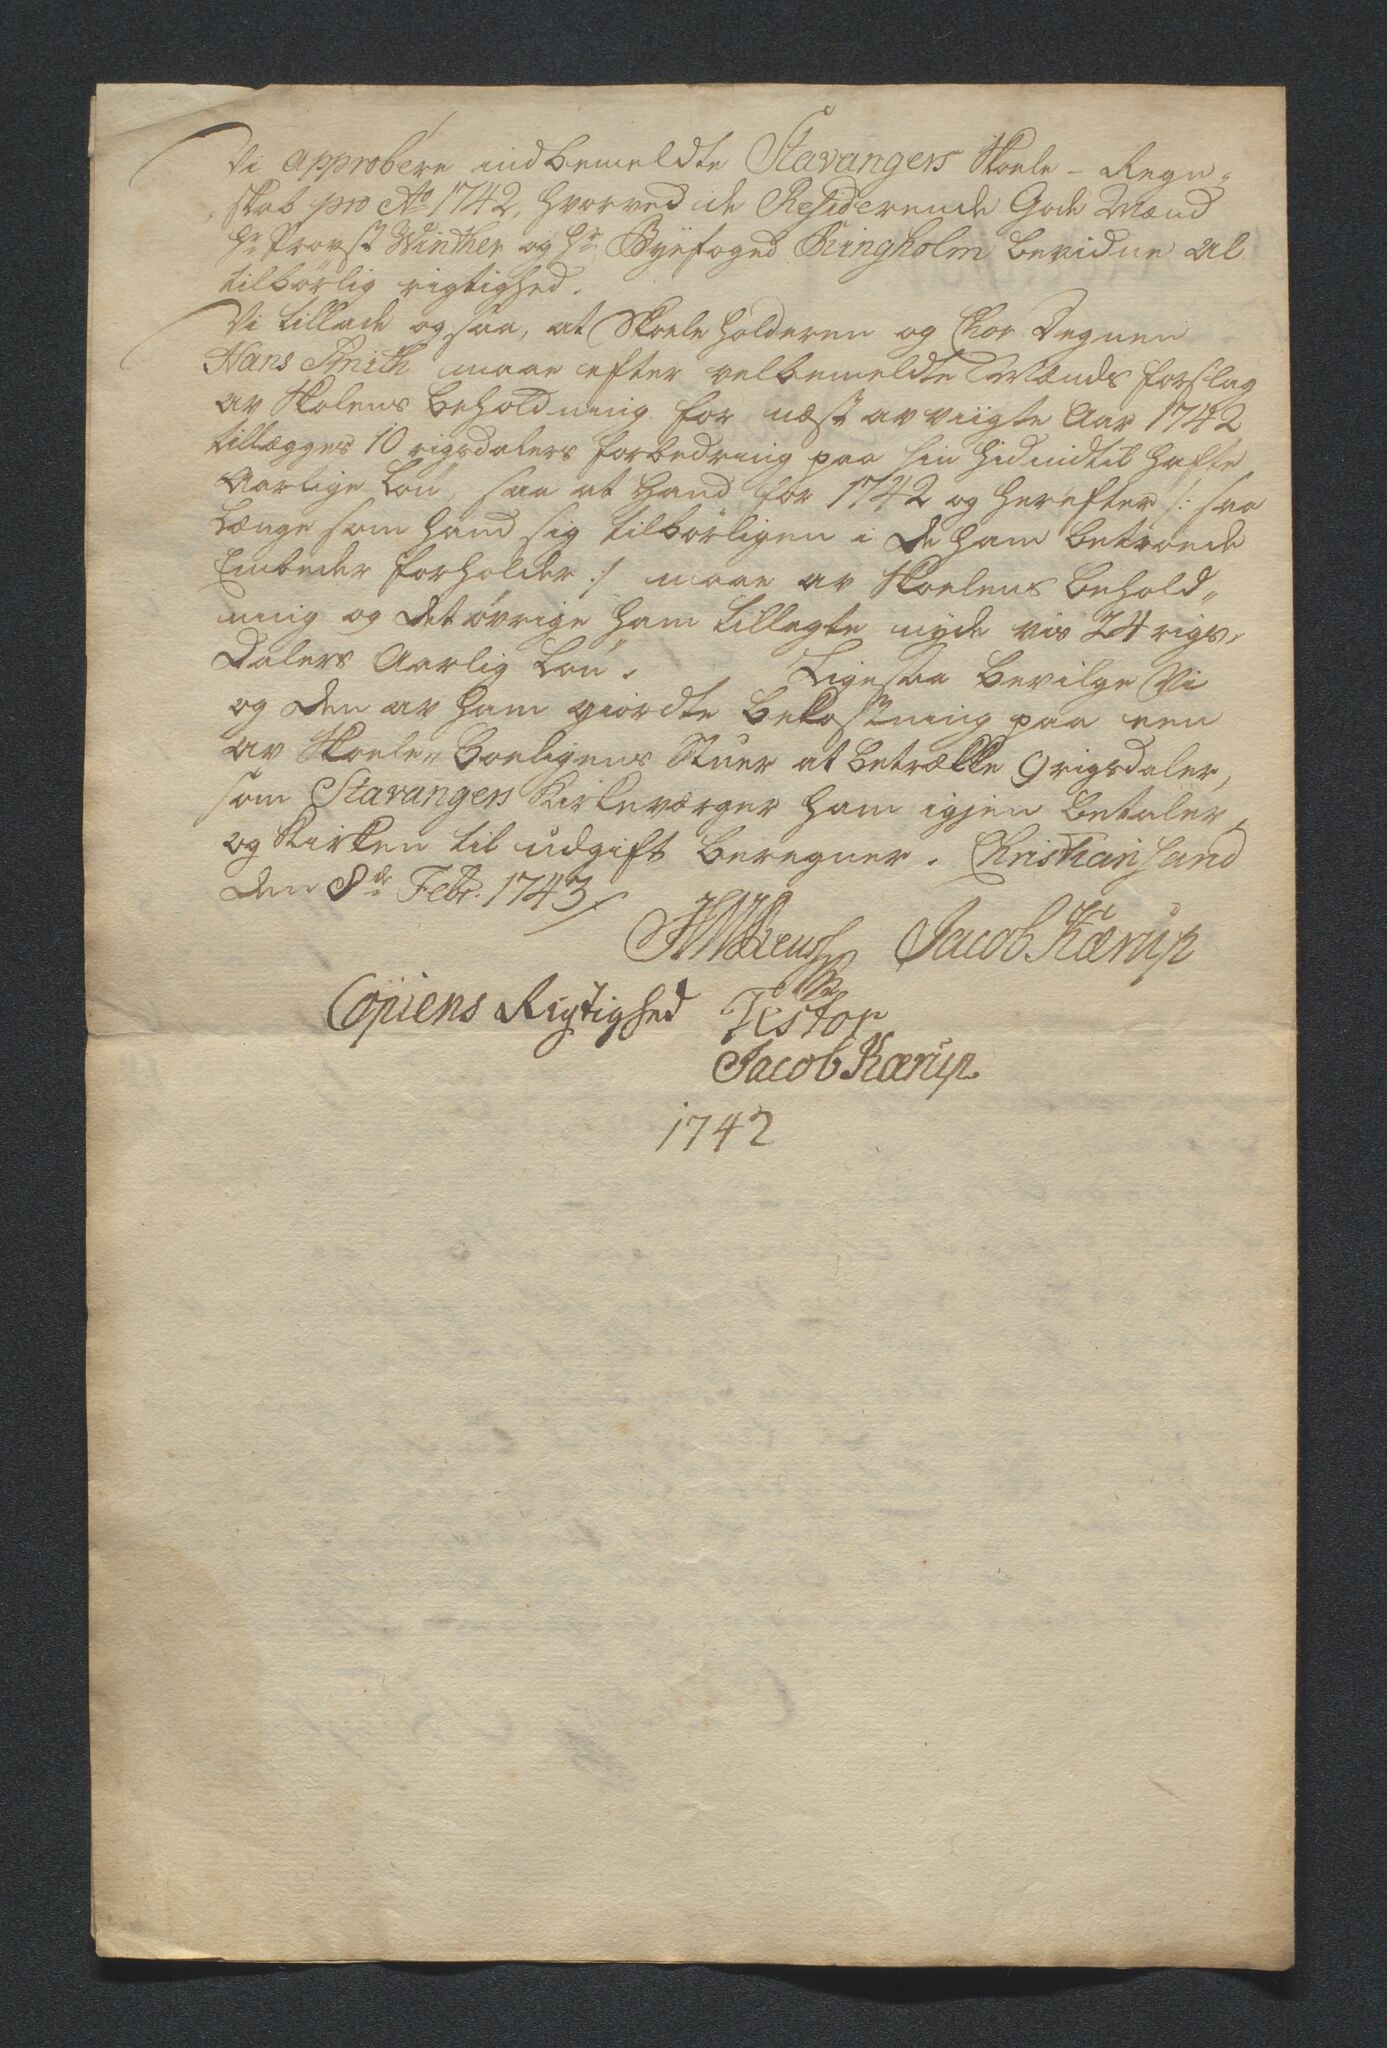 Vi approbere indbemeldte Stavangers Skoele-Regn-
skab pro Ao 1742, hvorved de Residerende Gode Mænd
Hr Provst Winther og Hr Byefoged Ringholm bevidne al
tilbørlig rigtighed.
Vi tillade ogsaa, at Skoeleholderen og Chor Degnen
Hans Smith maae efter velbemeldte Mænds forslag
av Skolens Beholdning for næst avvigte Aar 1742
tillægges 10 rigsdalers forbedring paa sin hidindtil hafte
Aarlige Løn, saa at Hand for 1742 og herefter /: saa
Længe som hand sig tilbørligen i De ham Betroede
Embeder forholder :/ maae av Skoelens Behold-
ning og Det øvrige ham tillagte nyde vis 24 rigs-
Dalers Aarlig Løn. Ligesaa Bevilge Vi
og Den av ham giordte Bekostning paa een
av Skoele-Boeligens Stuer at Betrække 9 rigsdaler,
som Stavangers Kirkeværger ham igjen Betaler,
og Kirken til udgift Beregner. Christiansand
Den 8de Febr. 1743/.
Jacob Kærup
Copiens Rigtighed Testor
Jacob Kærup
1742